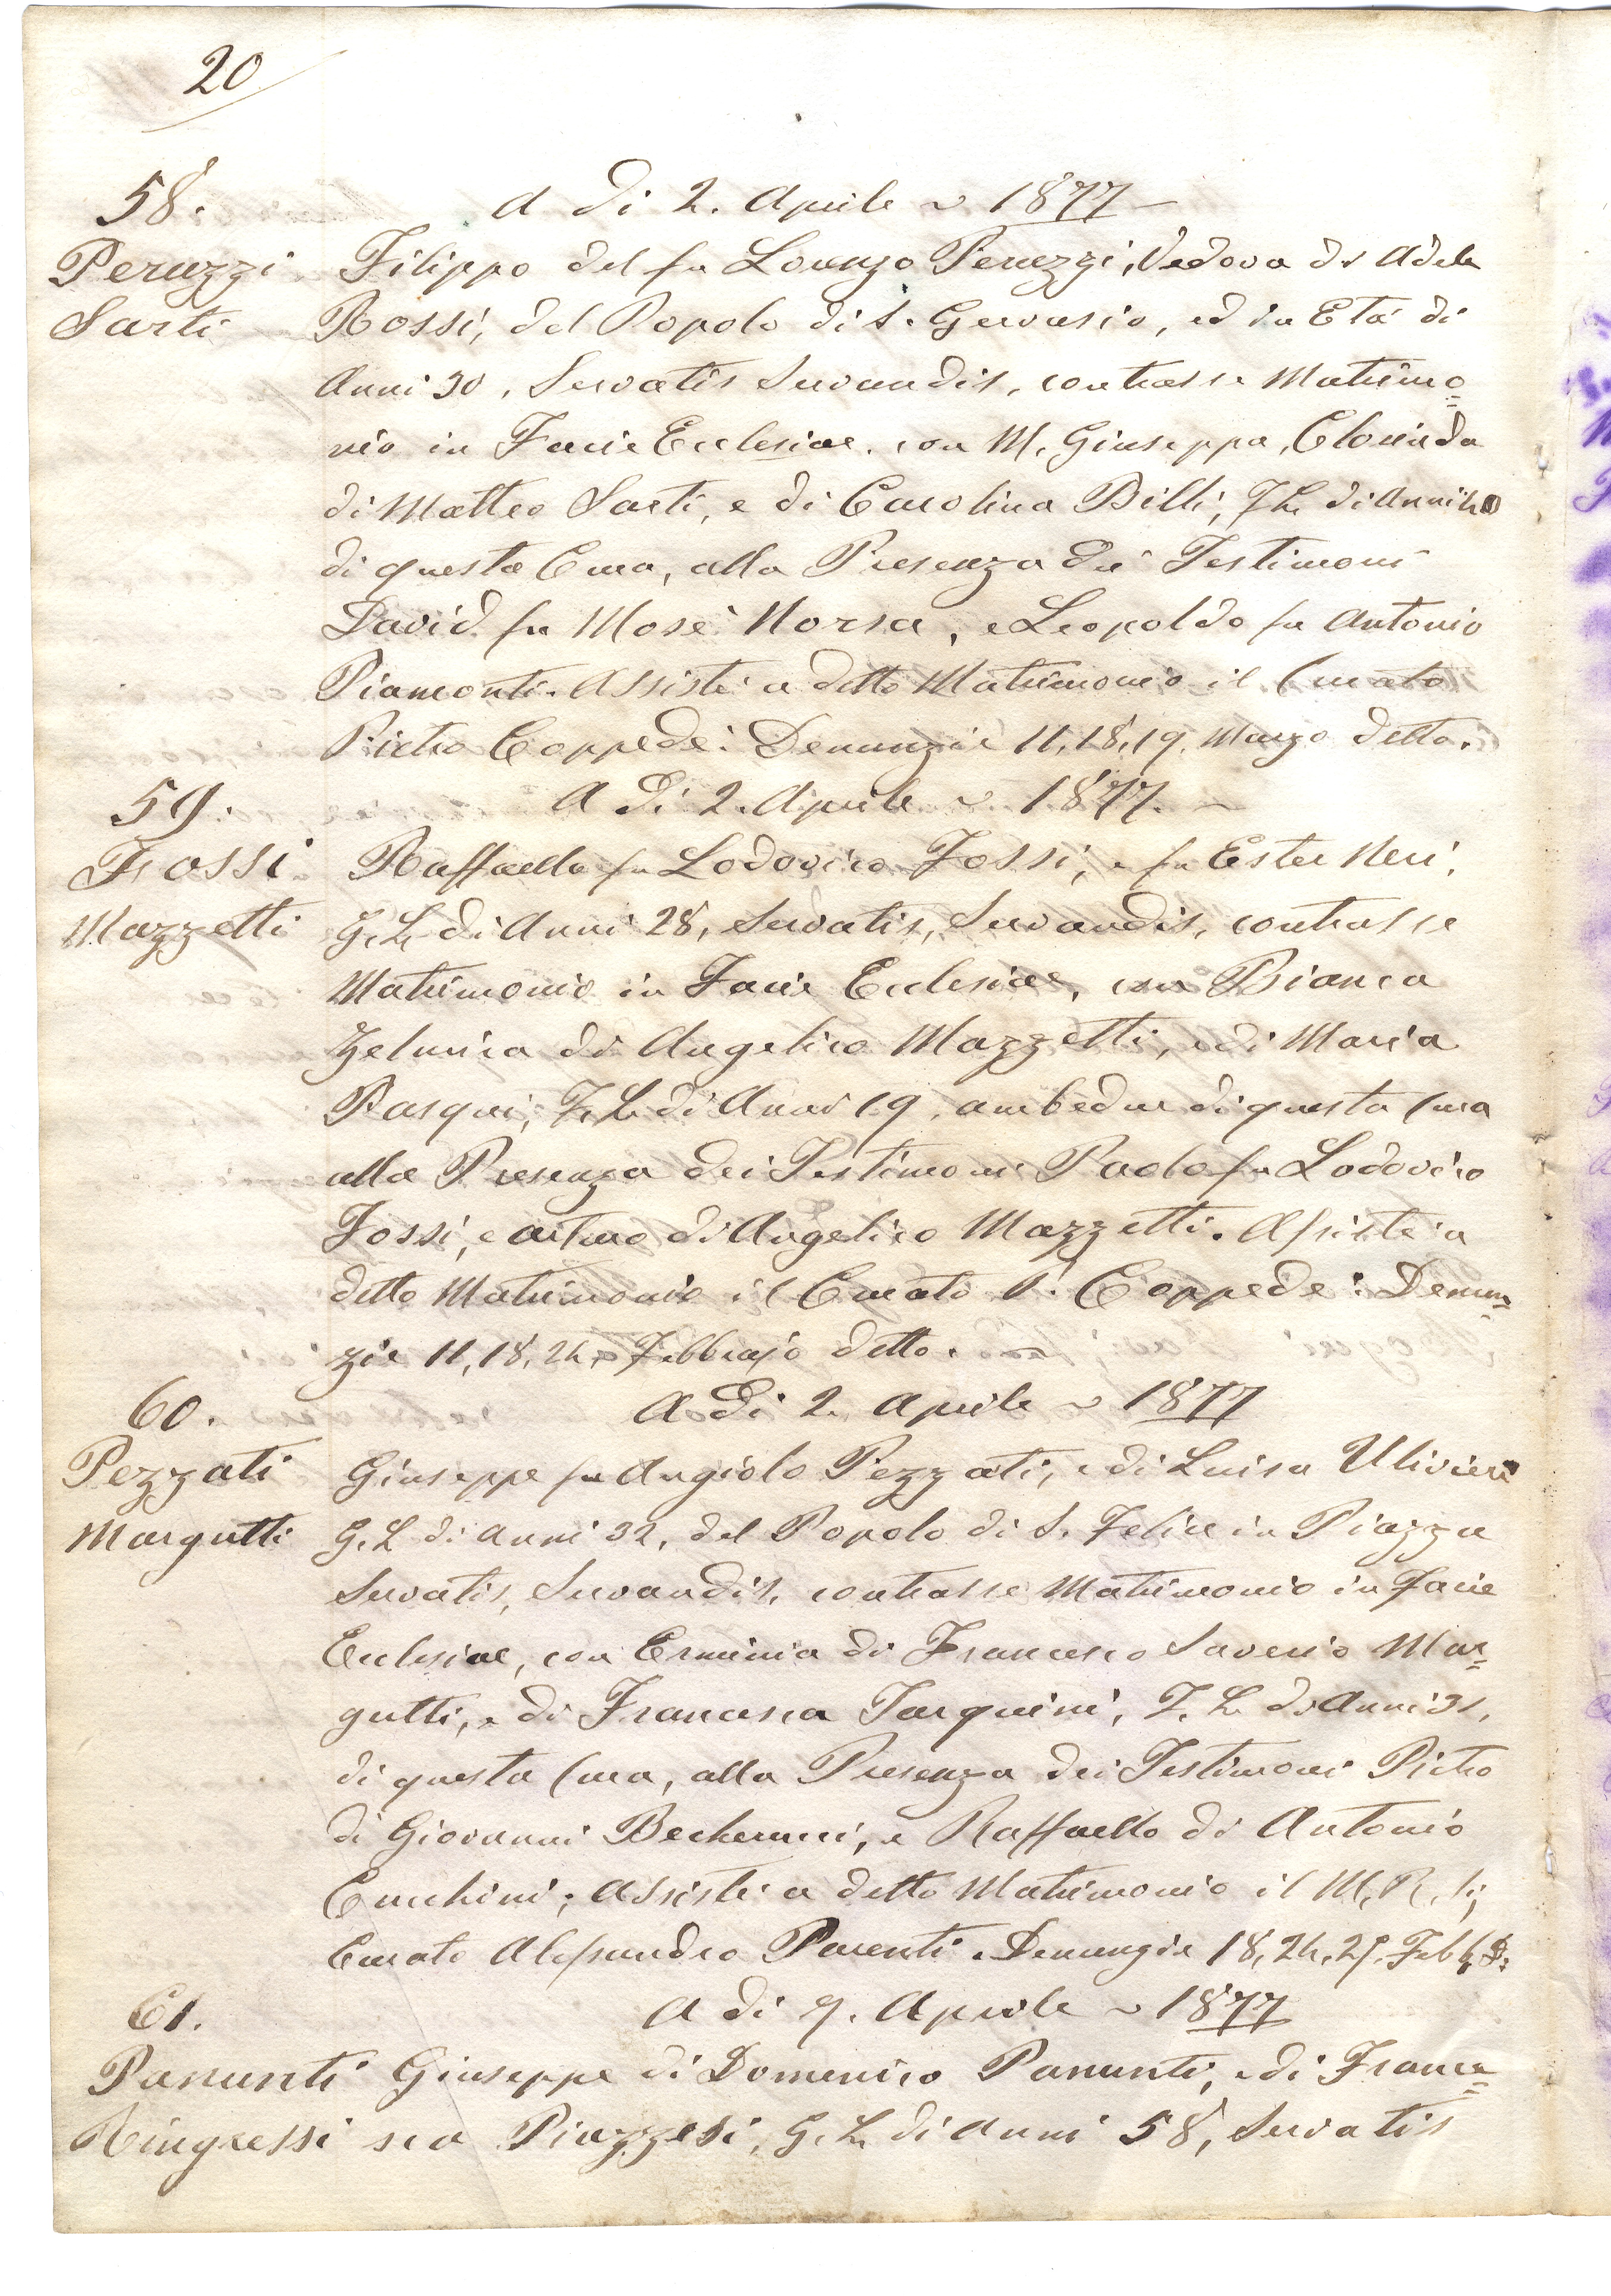 20
58.
A di 2. Aprile 1877
Peruzzi
Sarti
Filippo del fu Lorenzo Peruzzi, Vedovo di Adele
Rossi, del Popolo di S. Gervasio, ed in Età di
Anni 30, Servatis Servandis, contrasse Matrimo=
nio in Facie Ecclesiae, con M. Giuseppa, Clorinda
di Matteo Sarti, e di Carolina Billi, F. L. di Anni
di questa Cura, alla Presenza dei Testimoni
David fu Mosè Norsa, e Leopoldo fu Antonio
Piamonti. Assistè a detto Matrimonio il Curato
Pietro Coppedè: Denunzie 11, 18, 19, Marzo detto.
59.
A di 2. Aprile 1877.
Fossi
Mazzetti
Raffaello fu Lodovico Fossi, e fu Ester Neri,
G. L. di Anni 28, Servatis, Servandis, contrasse
Matrimonio in Facie Ecclesiae, con Bianca
Zelmira di Angelico Mazzetti, e di Maria
Pasqui, F. L. di Anni 19, ambedue di questa Cura
alla Presenza dei Testimoni Paolo fu Lodovico
Fossi, e Arturo di Angelico Mazzetti. Assistè a
detto Matrimonio il Curato P. Coppedè: Denun=
zie 11, 18, 24, Febbrajo detto.
60.
A di 2. Aprile 1877
Pezzati
Margutti
Giuseppe fu Angiolo Pezzati, e di Luisa Ulivieri
G. L. di Anni 32, del Popolo di S. Felice in Piazza
Servatis, Servandis, contrasse Matrimonio in Facie
Ecclesiae, con Erminia di Francesco Saverio Mar=
gutti, e di Francesca Tarquini, F. L. di Anni 31,
di questa Cura, alla Presenza dei Testimoni Pietro
di Giovanni Becherucci, e Raffaello di Antonio
Cucchini; Assistè a detto Matrimonio il M. R. S.
Curato Alessandro Parenti. Denunzie 18, 24, 25, Febb. D.
61.
A di 9. Aprile 1877
Panunti
Ringressi
Giuseppe di Domenico Panunti, e di France=
sca Piazzesi, G. L. di Anni 58, Servatis